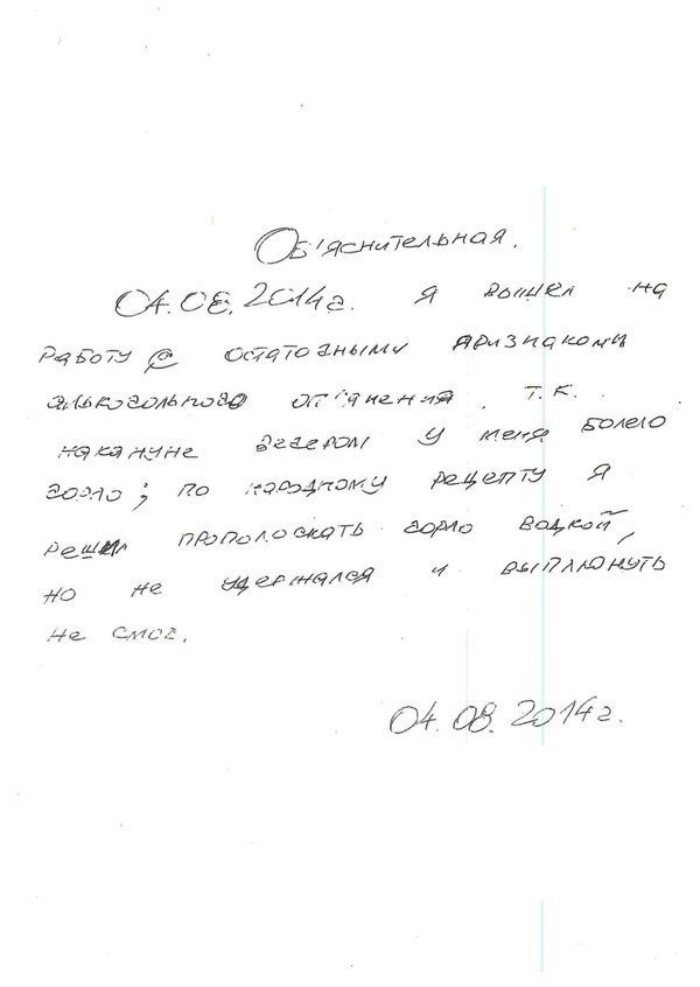 Об'яснительная.
04.08.2014г. я вышел на
работу с остаточными признаками
алькогольного оп'янения. т.к.
накануне вечером у меня болело
горло; по народному рецепту я
решил прополоскать горло водкой,
но не удержался и выплюнуть
не смог.
04.08.2014г.